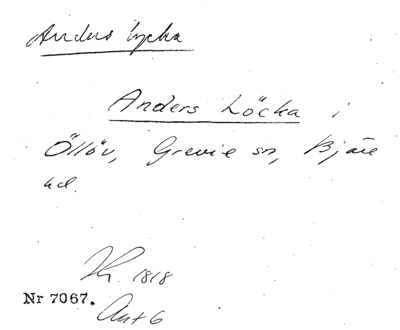 Anders Lycka
Anders Löcka i
Öllöv, Grevie sn, Bjäre
hd.
1818
Nr 7067.